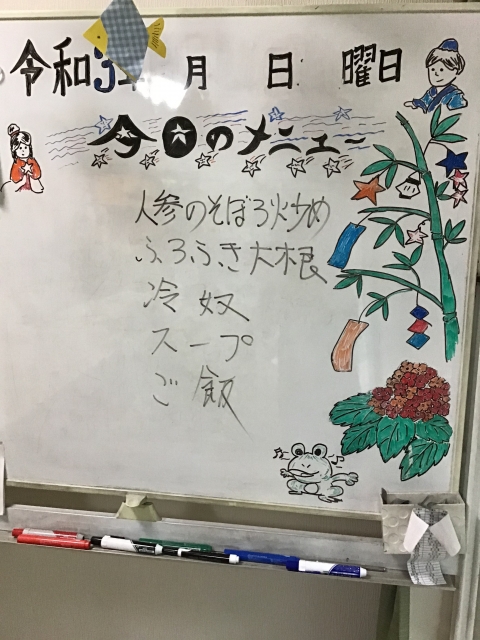 令和5年 月 日 曜日
今日のメニュー
人参のそぼろ炒め
ふろふき大根
冷奴
スープ
ご飯